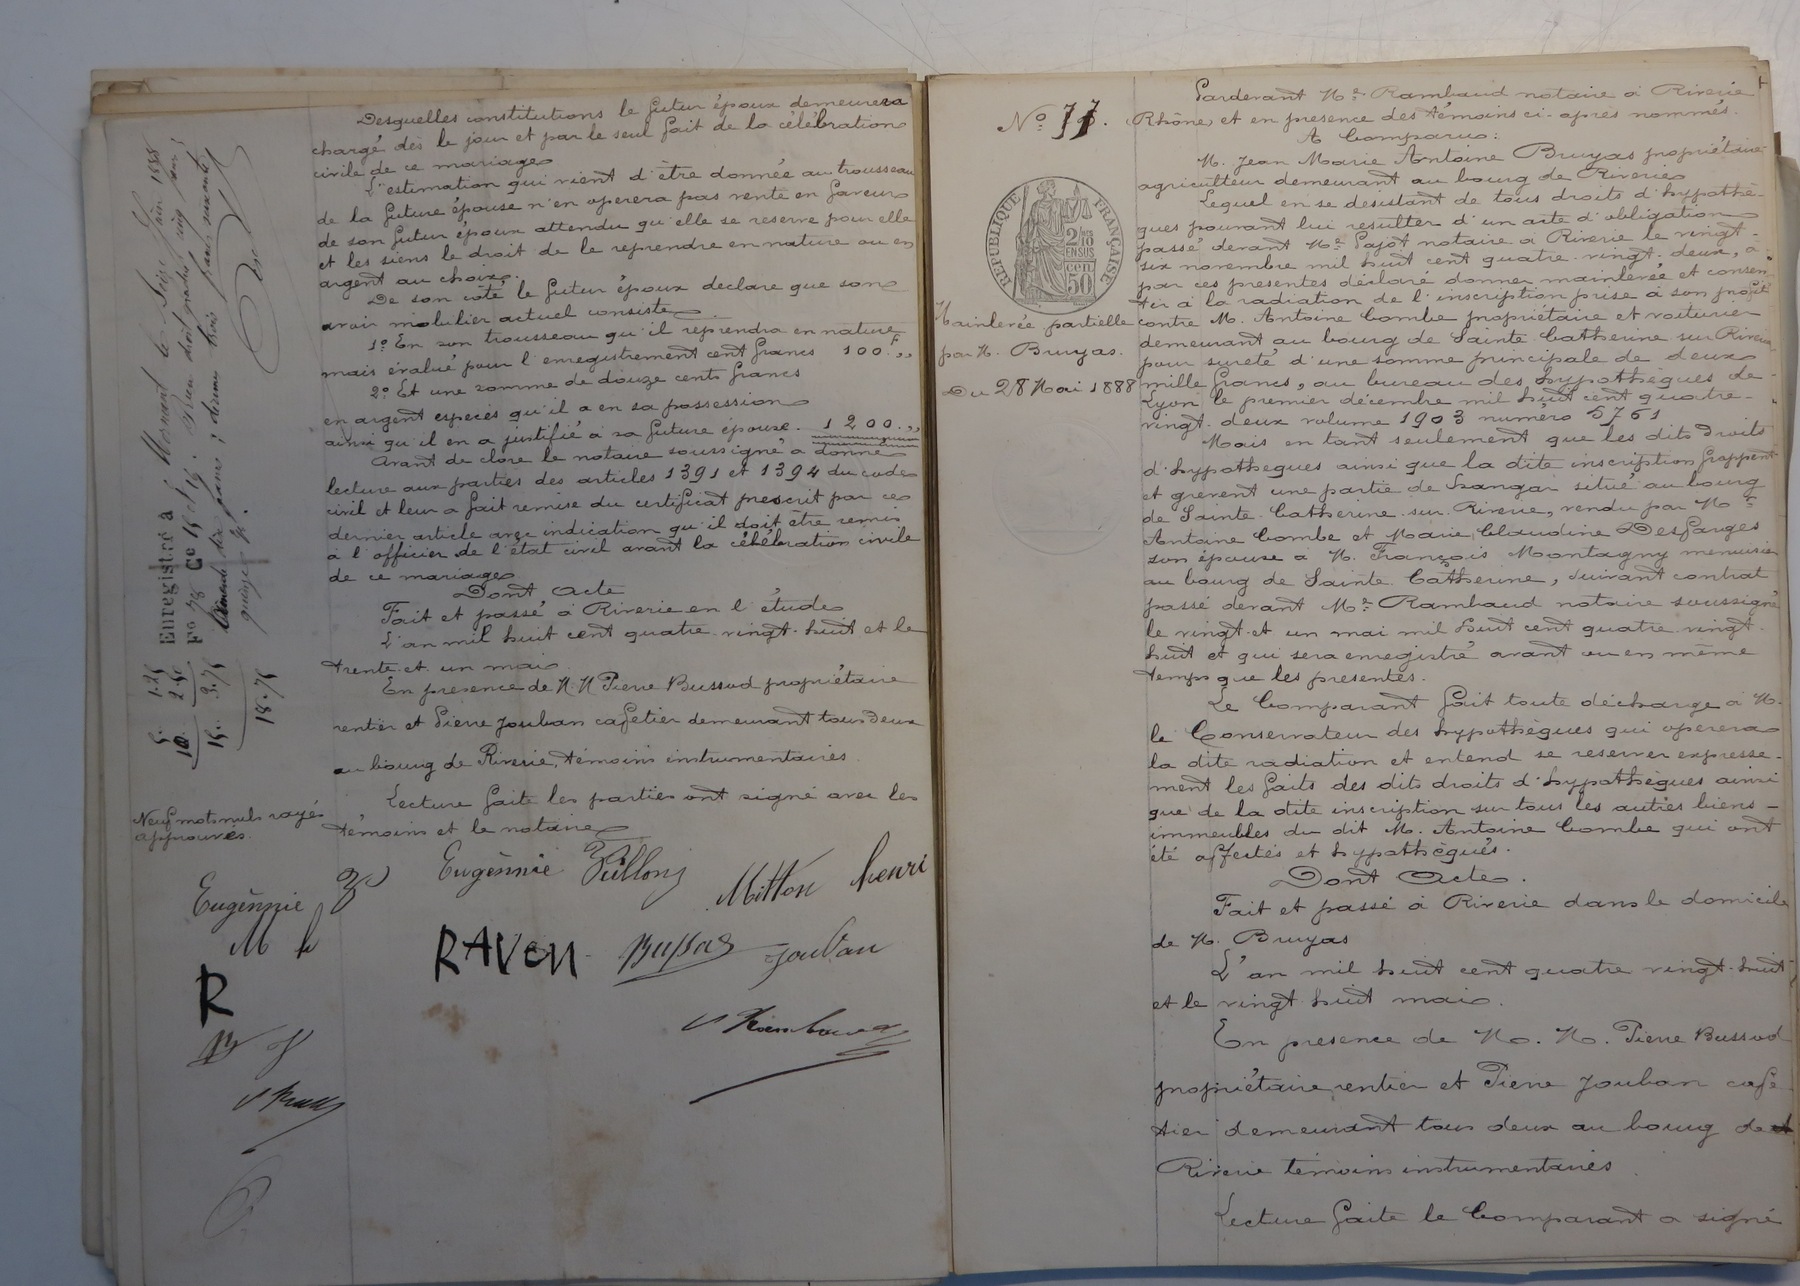 Desquelles constitutions le futur époux demeurera
chargé dès le jour et par le seul fait de la célébration
civile de ce mariage
L'estimation qui vient d'être donnée au trousseau
de la future épouse n'en operera pas vente en faveur
de son futur époux attendu qu'elle se reserve pour elle
et les siens le droit de le reprendre en nature ou en
argent au choix.
De son côté le futur époux déclare que son
avoir mobilier actuel consiste
1º En son trousseau qu'il reprendra en nature
mais évalué pour l'enregistrement cent francs 100F,,
2º Et une somme de douze cents francs
en argent especes qu'il a en sa possession
ainsi qu'il en a justifié à sa future épouse. 1200.,,
Avant de clore le notaire soussigné a donné
lecture aux parties des articles 1391 et 1394 du code
civil et leur a fait remise du certificat prescrit par ce
dernier article avec indication qu'il doit être remis
à l'officier de l'état civil avant la célébration civile
de ce mariage
Dont Acte
Fait et passé à Riverie en l'étude
L'an mil huit cent quatre-vingt-huit et le
trente et un mai
En presence de M.M Pierre Bussod propriétaire
rentier et Pierre Jouban cafetier demeurant tous deux
au bourg de Riverie, témoins instrumentaires.
Lecture faite les parties ont signé avec les
témoins et le notaire
Eugènnie Pillon
Mitton henri
RAVEN
Jouban
Enregistré à Mornant le Seize Juin 1888
Fº 78 Cº 15
5. 1.25
10. 2.50
15. 3.75
18.75
Neuf mots nuls rayés
approuvés.
Eugènnie
M h
R
Nº 77.
RÉPUBLIQUE FRANÇAISE
2/10
EN SUS
50 cen
Mainlevée partielle
par M. Bruyas.
Du 28 Mai 1888
Pardevant Me Rambaud notaire à Riverie
Rhône, et en presence des témoins ci-après nommés.
A Comparu:
M. Jean Marie Antoine Bruyas propriétaire
agriculteur demeurant au bourg de Riverie
Lequel en se desistant de tous droits d'hypothè-
ques pouvant lui resulter d'un acte d'obligation
passé devant Me Pajot notaire à Riverie le vingt-
six novembre mil huit cent quatre-vingt-deux, a
par ces presentes déclaré donner mainlevée et consen-
tir à la radiation de l'inscription prise à son profit
contre M. Antoine Combe propriétaire et voiturier
demeurant au bourg de Sainte Catherine sur Riverie
pour sureté d'une somme principale de deux
mille francs, au bureau des hypothèques de
Lyon le premier décembre mil huit cent quatre-
vingt-deux volume 1903 numéro 5761
Mais en tant seulement que les dits droits
d'hypothèques ainsi que la dite inscription frappent
et grèvent une partie de hangar situé au bourg
de Sainte-Catherine-sur-Riverie, vendu par M.
Antoine Combe et Marie Claudine Desfarges
son épouse à M. François Montagny menuisier
au bourg de Sainte Catherine, suivant contrat
passé devant Me Rambaud notaire soussigné
le vingt-et un mai mil huit cent quatre-vingt-
huit et qui sera enregistré avant ou en même
temps que les presentes.
Le Comparant fait toute décharge à M.
le Conservateur des hypothèques qui operera
la dite radiation et entend se reserver expresse-
ment les faits des dits droits d'hypothèques ainsi
que de la dite inscription sur tous les autres biens-
immeubles du dit M. Antoine Combe qui ont
été affectés et hypothèqués.
Dont Acte.
Fait et passé à Riverie dans le domicile
de M. Bruyas
L'an mil huit cent quatre vingt-huit
et le vingt huit mai.
En presence de M. M. Pierre Bussod
propriétaire rentier et Pierre Jouban cafe-
tier demeurant tous deux au bourg de
Riverie témoins instrumentaires
Lecture faite le Comparant a signé